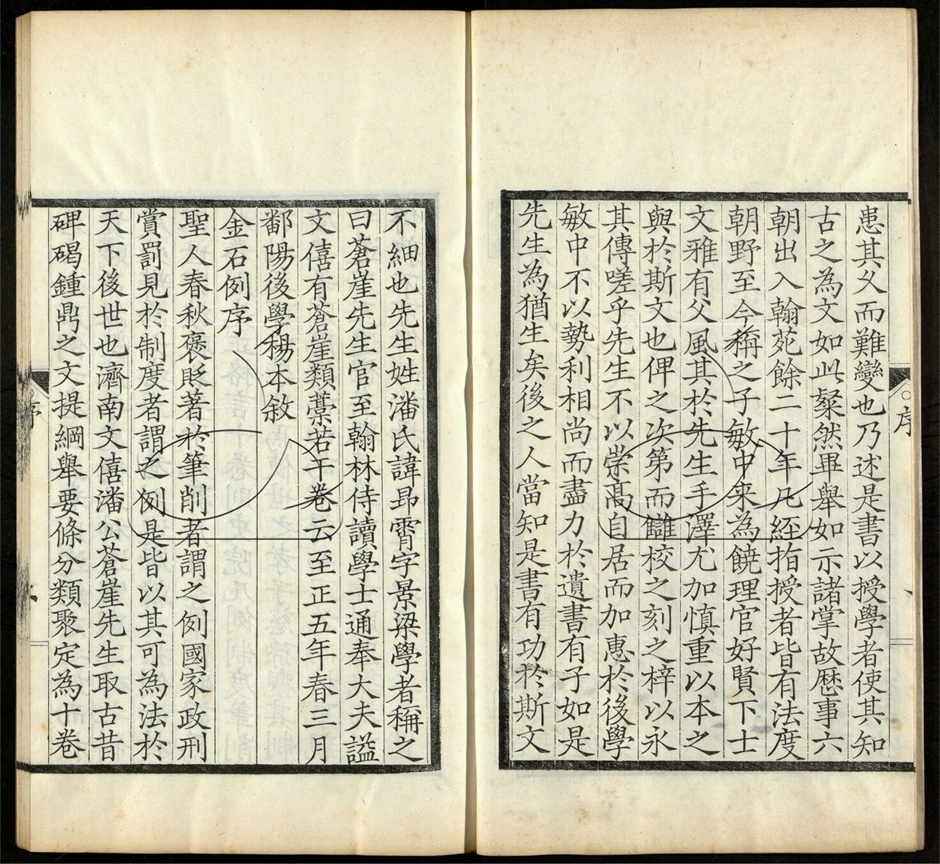 患其父而難變也乃述是書以授學者使其知
古之為文如此粲然畢舉如示諸掌故歷事六
朝出入翰苑餘二十年凡經指授者皆有法度
朝野至今稱之子敏中来為饒理官好賢下士
文雅有父風其於先生手澤尤加慎重以本之
與於斯文也俾之次第而讎校之刻之梓以永
其傳嗟乎先生不以崇髙自居而加惠於後學
敏中不以勢利相尚而盡力於遺書有子如是
先生為猶生矣後之人當知是書有功於斯文
序
不細也先生姓潘氏諱昻霄字景梁學者稱之
曰蒼崖先生官至翰林侍讀學士通奉大夫謚
文僖有蒼崖類藁若干卷云至正五年春三月
鄱陽後學楊本敘
金石例序
聖人春秋褒貶著於筆削者謂之例國家政刑
賞罰見於制度者謂之例是皆以其可為法於
天下後世也濟南文僖潘公蒼崖先生取古昔
碑碣鍾鼎之文提綱舉要條分類聚定為十卷
序